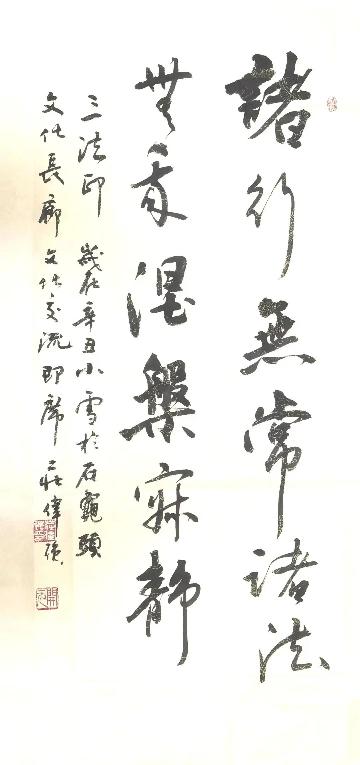 諸行無常諸法
無我涅槃寂静
三法印 歲在辛丑小雪於石龜頭
文化長廊文化交流即席 莊偉